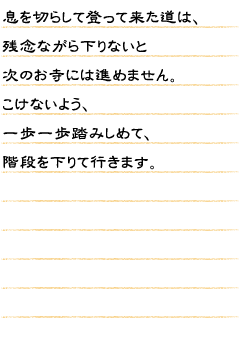 息を切らして登って来た道は、
残念ながら下りないと
次のお寺には進めません。
こけないよう、
一歩一歩踏みしめて、
階段を下りて行きます。